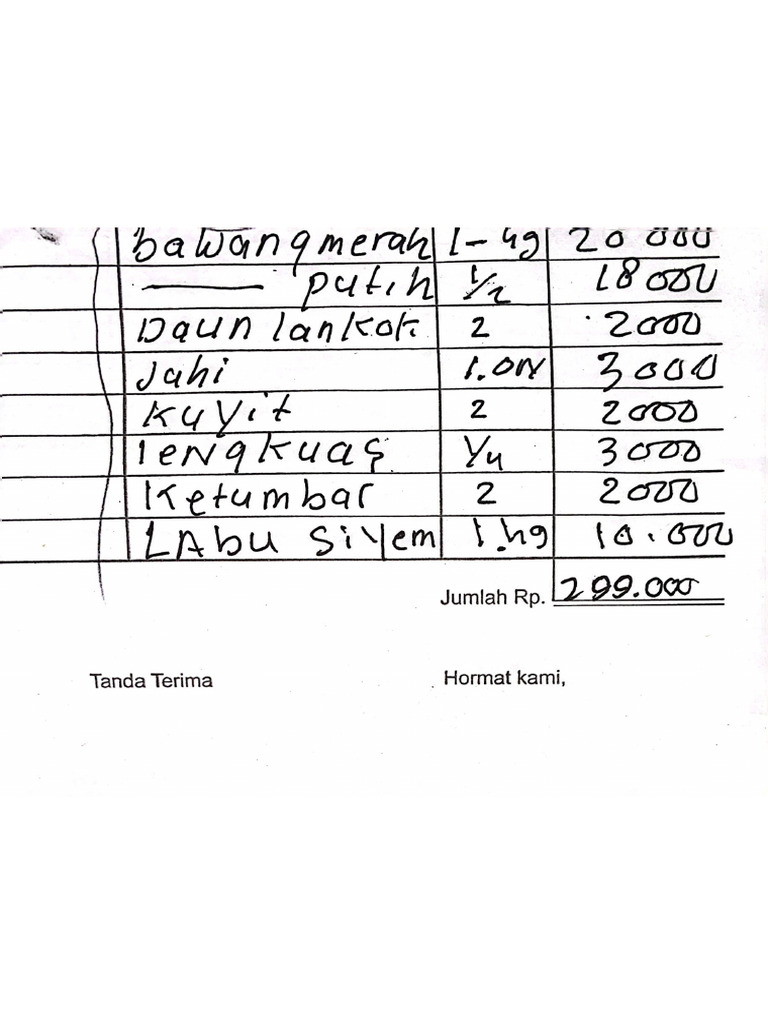 bawang merah 1-kg 20 000
—— putih 1/2 18 000
Daun lankok 2 2000
Jahi 1.ON 3000
kuyit 2 2000
lengkuas 1/4 3000
Ketumbar 2 2000
LAbu Siyem 1.kg 10.000
Jumlah Rp. 299.000
Tanda Terima Hormat kami,